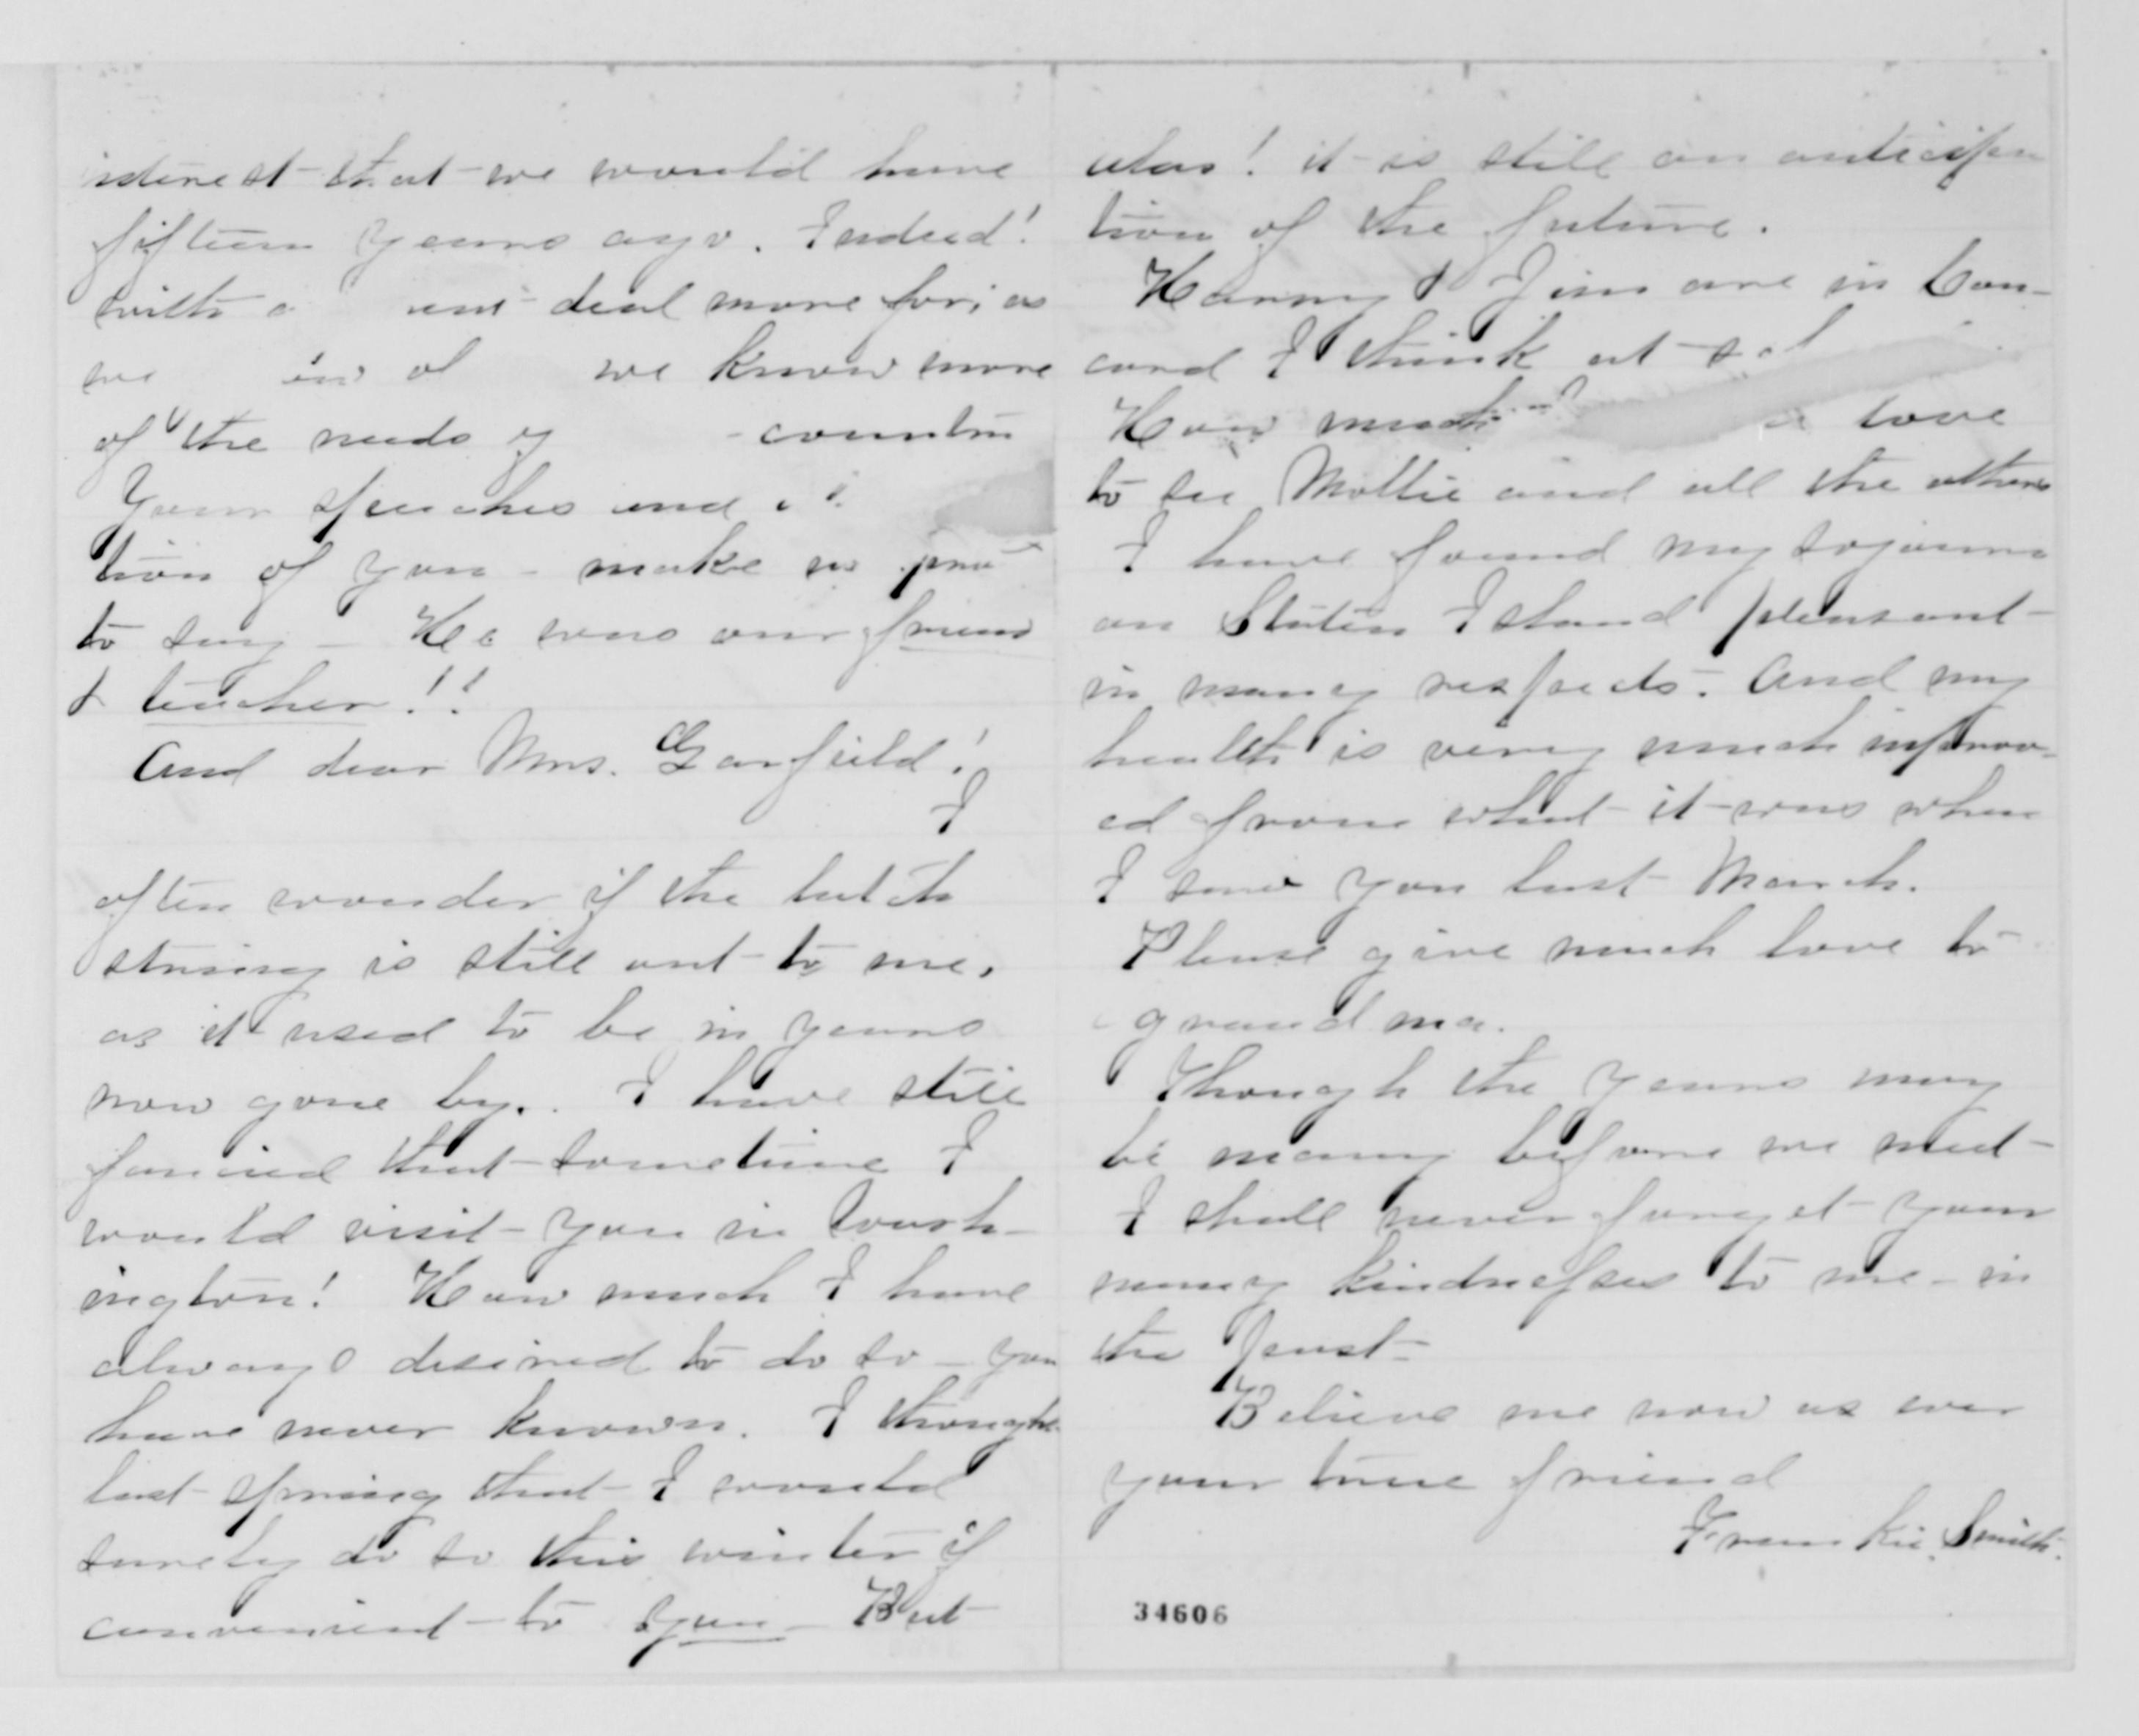 interest that we would have
fifteen years ago. Indeed!
with a deal more for; as
we in we know more
of the needs of
Your speeches and
tion of you - make us
to say - He was our friend
& teacher!!
And dear Mrs. Garfield!
I
often wonder if the latch
string is still out to me,
as it used to be in years
now gone by. I have still
fancied that sometime I
would visit you in Wash-
ington! How much I have
always desired to do so - you
have never known. I thought
last spring that I would
surely do so this winter if
convenient to you - But
alas! it is still an anticipa
tion of the future.
Harry & Jim are in Con-
cord I think at
How much love
to see Mollie and all the others
I have found my sojourn
on Staten Island pleasant
in many respects. And my
health is very much improv-
ed from what it was when
I saw you last March.
Please give much love to
grandma.
Though the years may
be many before we meet
I shall never forget your
many kindnesses to me - in
the past-
Believe me now as ever
your true friend
Frankie Smith.
34606